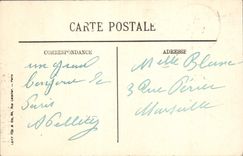 CARTE POSTALE
CORRESPONDANCE
ADRESSE
un grand
bonjour de
Paris
A Pelletey
Melle Blanc
3 Rue Périer
Marseille